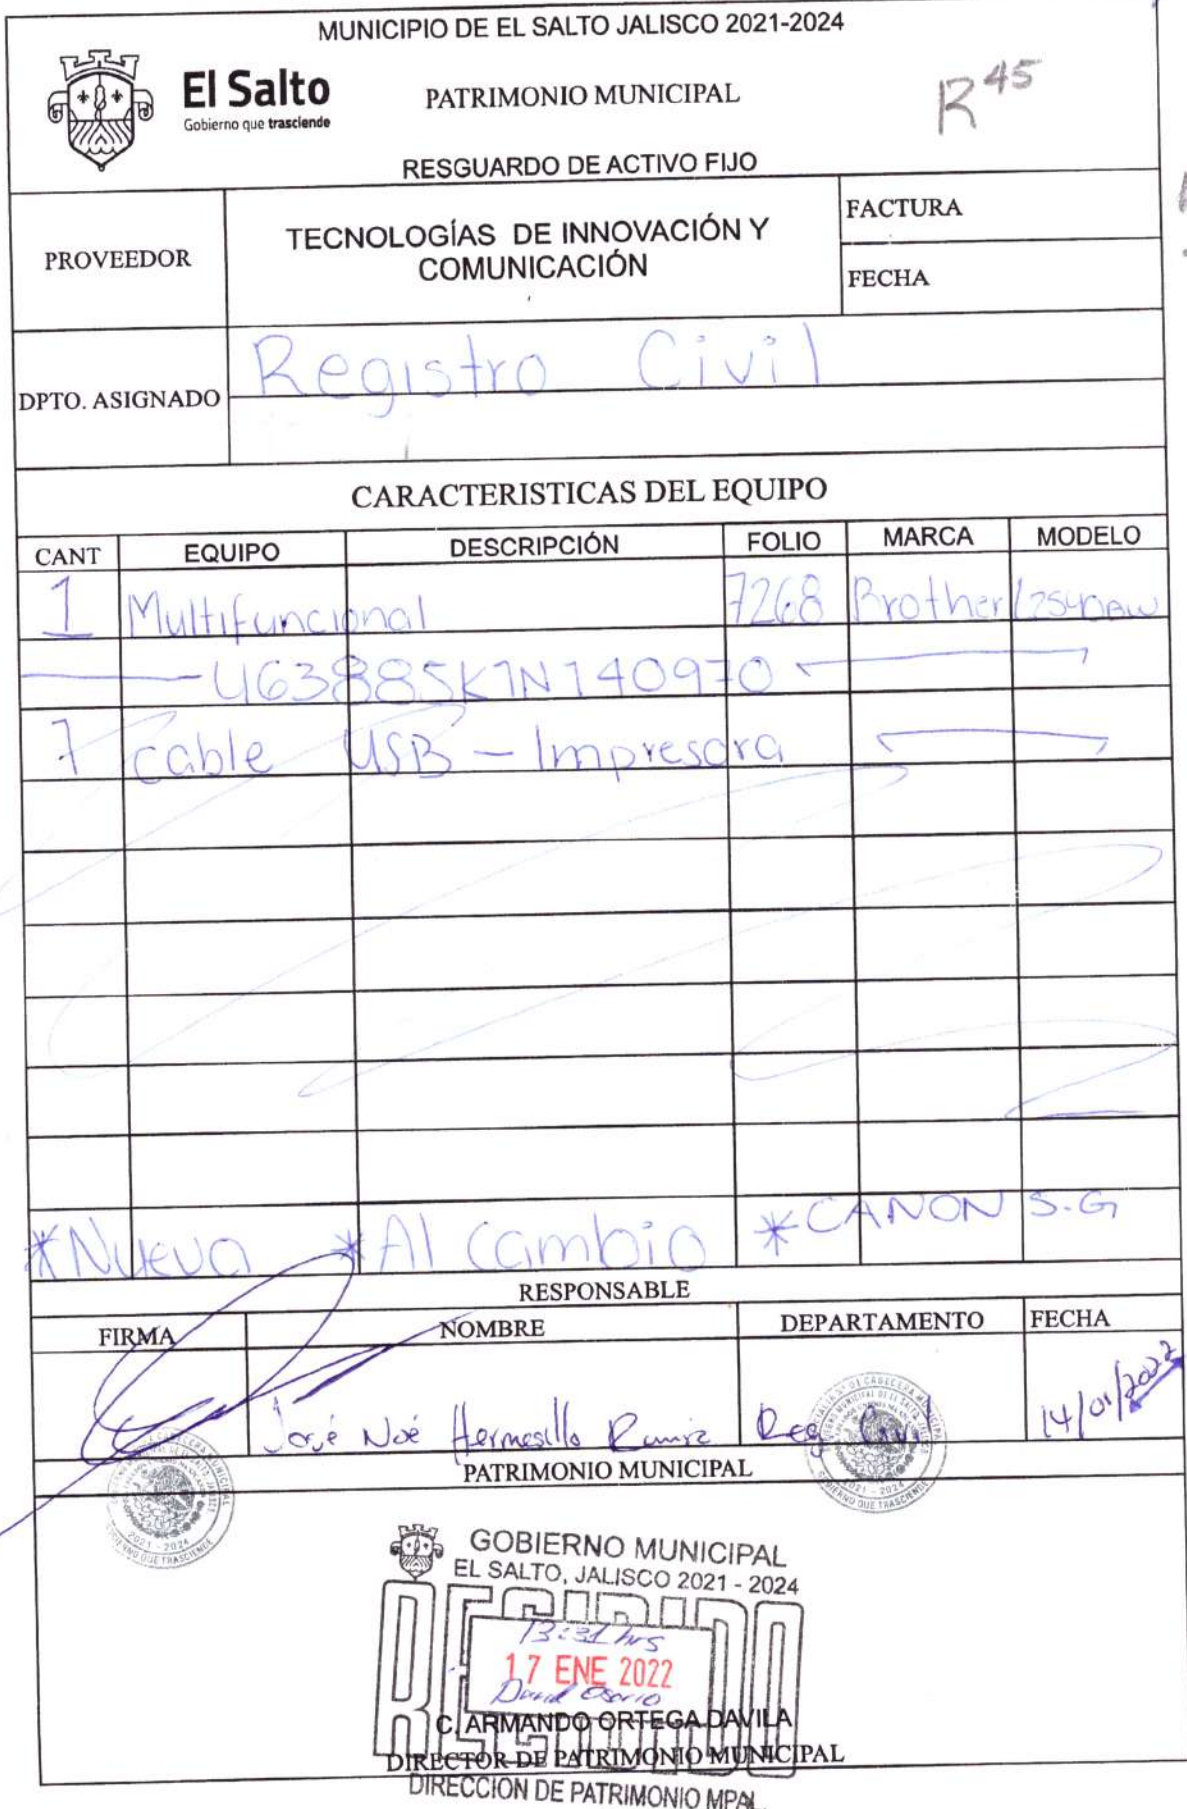 MUNICIPIO DE EL SALTO JALISCO 2021-2024
El Salto
Gobierno que trasciende
PATRIMONIO MUNICIPAL
R45
RESGUARDO DE ACTIVO FIJO
PROVEEDOR
TECNOLOGÍAS DE INNOVACIÓN Y
COMUNICACIÓN
FACTURA
FECHA
DPTO. ASIGNADO
Registro Civil
CARACTERISTICAS DEL EQUIPO
CANT EQUIPO DESCRIPCIÓN FOLIO MARCA MODELO
1 Multifuncional 7268 Brother L2540DW
U63885K1N140970
1 cable USB - Impresora
*Nueva *Al cambio *CANON S.G
RESPONSABLE
FIRMA NOMBRE DEPARTAMENTO FECHA
José Noé Hermosillo Ramirez Reg Civil 14/01/2022
PATRIMONIO MUNICIPAL
2021 - 2024
GOBIERNO QUE TRASCIENDE
GOBIERNO MUNICIPAL
EL SALTO, JALISCO 2021 - 2024
RECIBIDO
13:31 hrs
17 ENE 2022
David Osorio
C. ARMANDO ORTEGA DAVILA
DIRECTOR DE PATRIMONIO MUNICIPAL
DIRECCION DE PATRIMONIO MPAL.